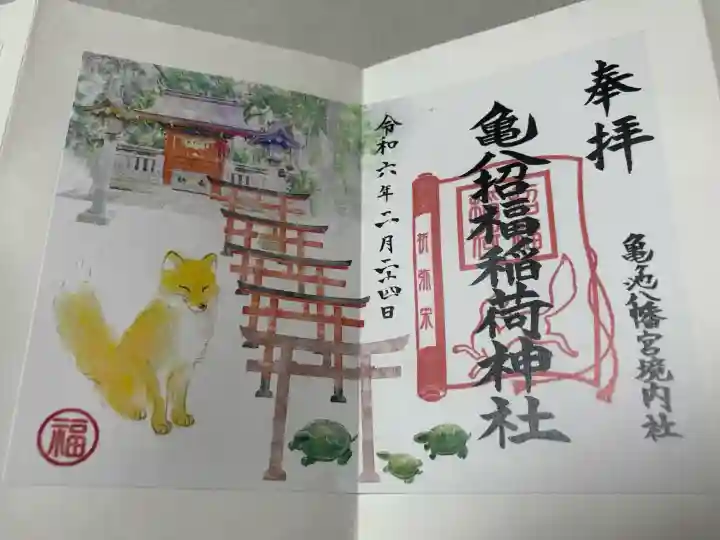 奉拝
亀池八幡宮境内社
亀八招福稲荷神社
祈弥栄
令和六年二月二十四日
福